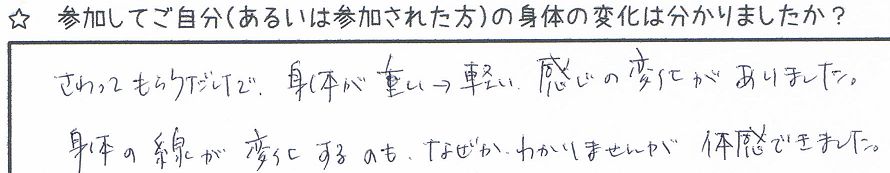 ☆ 参加してご自分(あるいは参加された方)の身体の変化は分かりましたか？
さわってもらうだけで、身体が重い→軽い 感じの変化がありました。
身体の線が変化するのも、なぜか、わかりませんが 体感できました。